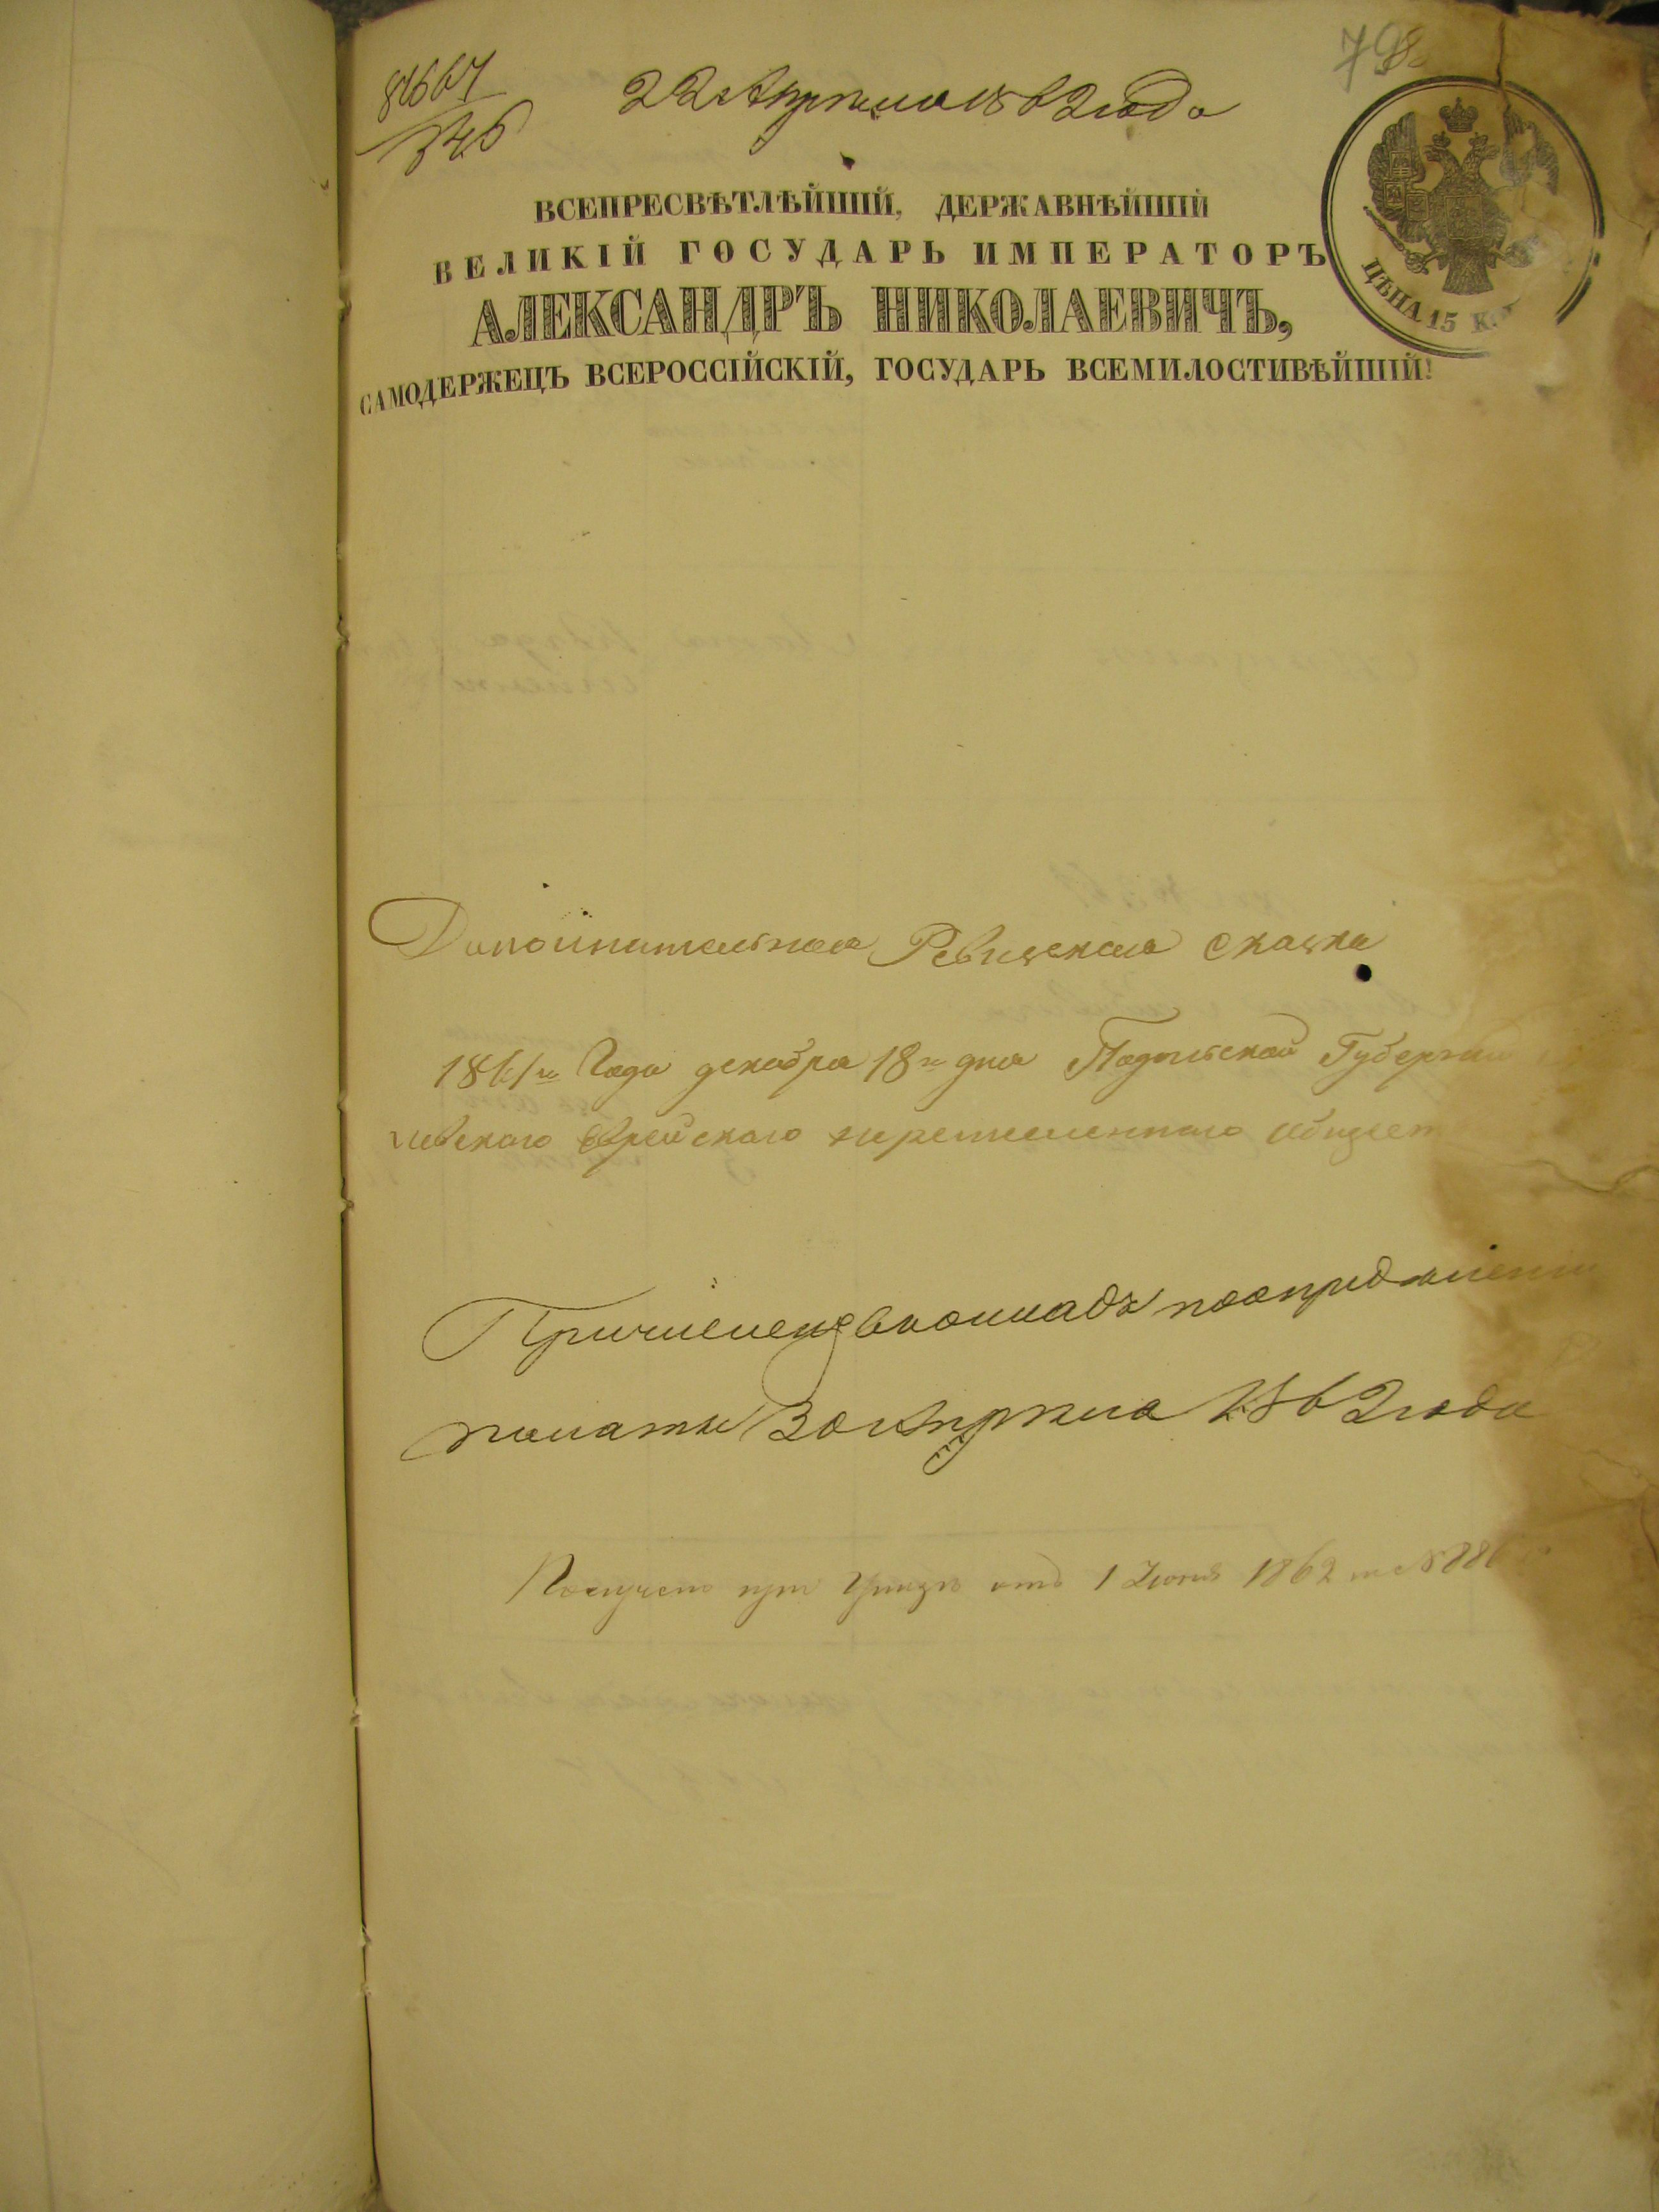 22 Апрѣля 1862 года
798
ВСЕПРЕСВѢТЛѢЙШІЙ, ДЕРЖАВНѢЙШІЙ
ВЕЛИКІЙ ГОСУДАРЬ ИМПЕРАТОРЪ
АЛЕКСАНДРЪ НИКОЛАЕВИЧЪ,
САМОДЕРЖЕЦЪ ВСЕРОССІЙСКІЙ, ГОСУДАРЬ ВСЕМИЛОСТИВѢЙШІЙ!
ЦѢНА 15 К
Дополнительная Ревизская сказка
1861го Года декабря 18го дня Подольской Губерніи
Еврейского общест
Причислены в окладъ
палаты 30 Апрѣля 1862 года
Получено при Указѣ отъ 1 Іюня 1862 за № 886